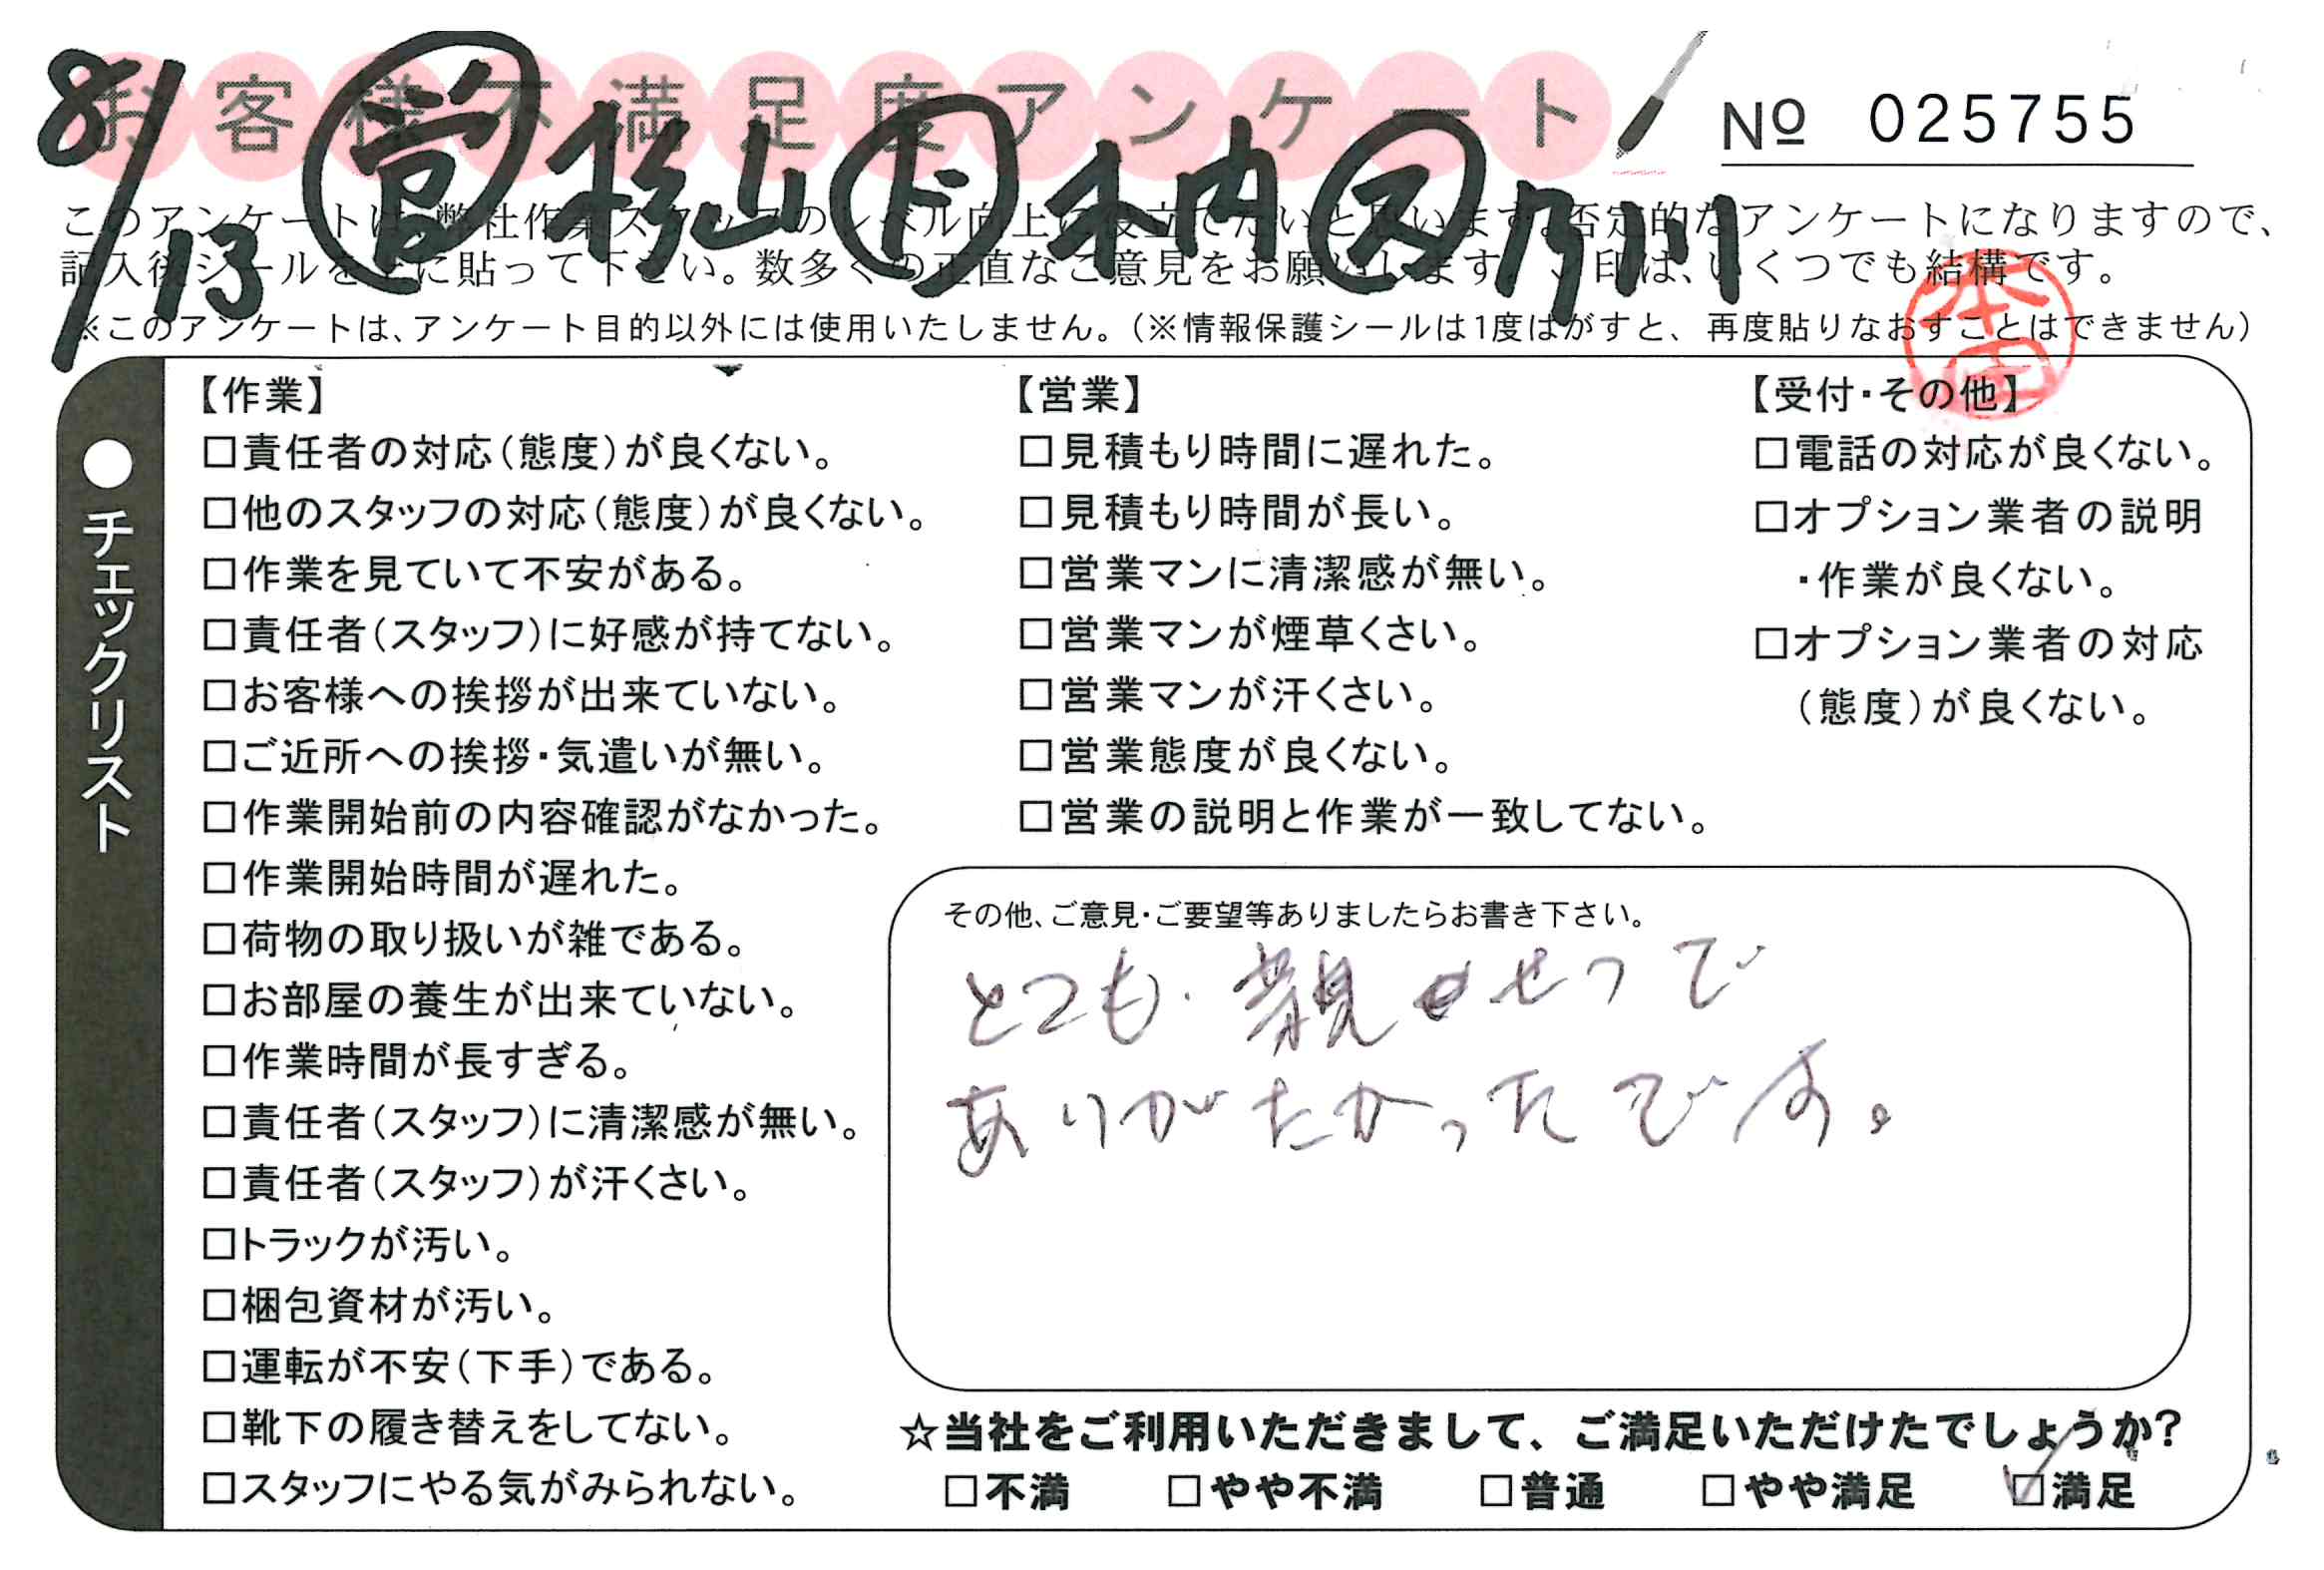 お客様不満足度アンケート
№ 025755
8/13 営 杉山 ド 木内 ス 乃川
このアンケートは、弊社作業スタッフのレベル向上に役立てたいと思います。否定的なアンケートになりますので、
記入後シールを上に貼って下さい。数多くの正直なご意見をお願いします。✓印は、いくつでも結構です。
※このアンケートは、アンケート目的以外には使用いたしません。（※情報保護シールは1度はがすと、再度貼りなおすことはできません）
●チェックリスト
【作業】
□責任者の対応（態度）が良くない。
□他のスタッフの対応（態度）が良くない。
□作業を見ていて不安がある。
□責任者（スタッフ）に好感が持てない。
□お客様への挨拶が出来ていない。
□ご近所への挨拶・気遣いが無い。
□作業開始前の内容確認がなかった。
□作業開始時間が遅れた。
□荷物の取り扱いが雑である。
□お部屋の養生が出来ていない。
□作業時間が長すぎる。
□責任者（スタッフ）に清潔感が無い。
□責任者（スタッフ）が汗くさい。
□トラックが汚い。
□梱包資材が汚い。
□運転が不安（下手）である。
□靴下の履き替えをしてない。
□スタッフにやる気がみられない。
【営業】
□見積もり時間に遅れた。
□見積もり時間が長い。
□営業マンに清潔感が無い。
□営業マンが煙草くさい。
□営業マンが汗くさい。
□営業態度が良くない。
□営業の説明と作業が一致してない。
【受付・その他】
□電話の対応が良くない。
□オプション業者の説明
・作業が良くない。
□オプション業者の対応
（態度）が良くない。
その他、ご意見・ご要望等ありましたらお書き下さい。
とても親せつで
ありがたかったです。
☆当社をご利用いただきまして、ご満足いただけたでしょうか？
□不満 □やや不満 □普通 □やや満足 ☑満足